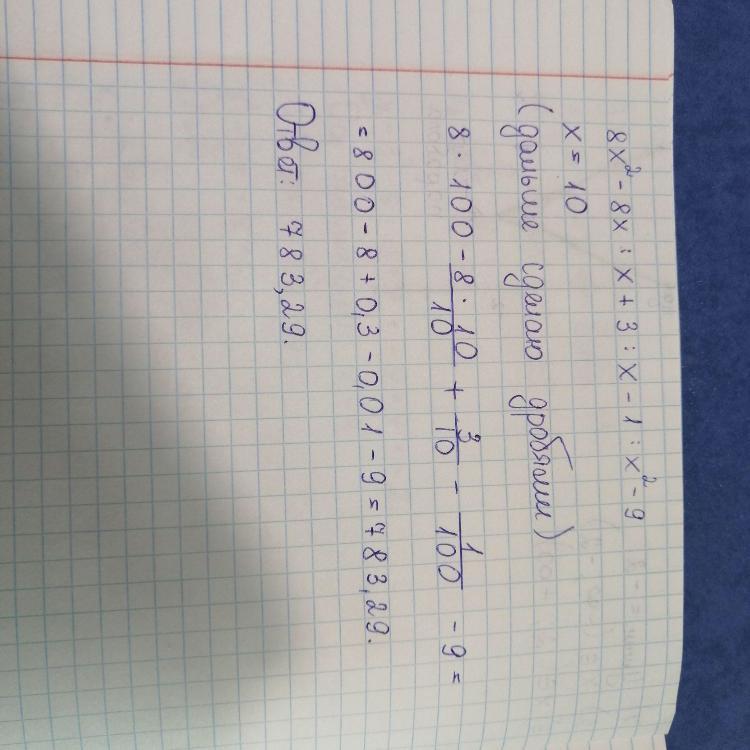 8x² - 8x : x + 3 : x - 1 : x² - 9
x = 10
(дальше сделаю дробями)
8 · 100 - 8 · 10/10 + 3/10 - 1/100 - 9 =
= 800 - 8 + 0,3 - 0,01 - 9 = 783,29.
Ответ: 783,29.